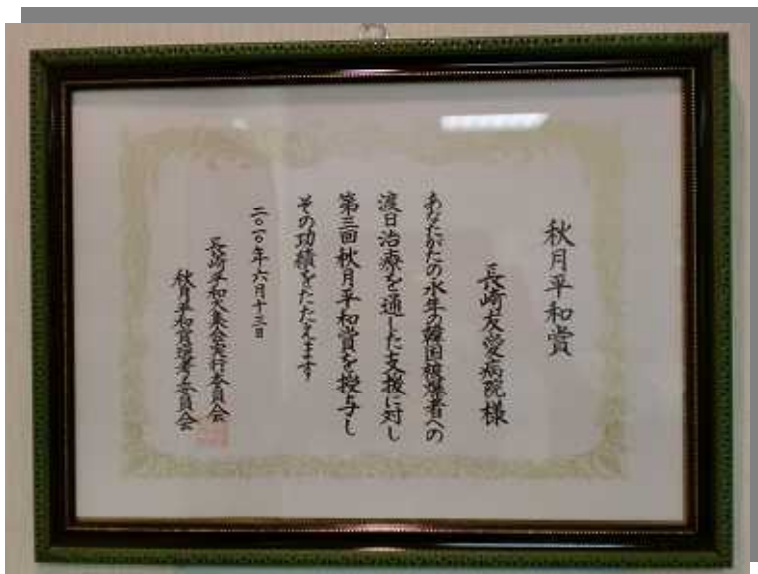 秋月平和賞
長崎友愛病院様
あなたがたの永年の韓国被爆者への
渡日治療を通した支援に対し
第三回秋月平和賞を授与し
その功績をたたえます
二〇一〇年六月十三日
長崎平和大集会実行委員会
秋月平和賞選考委員会